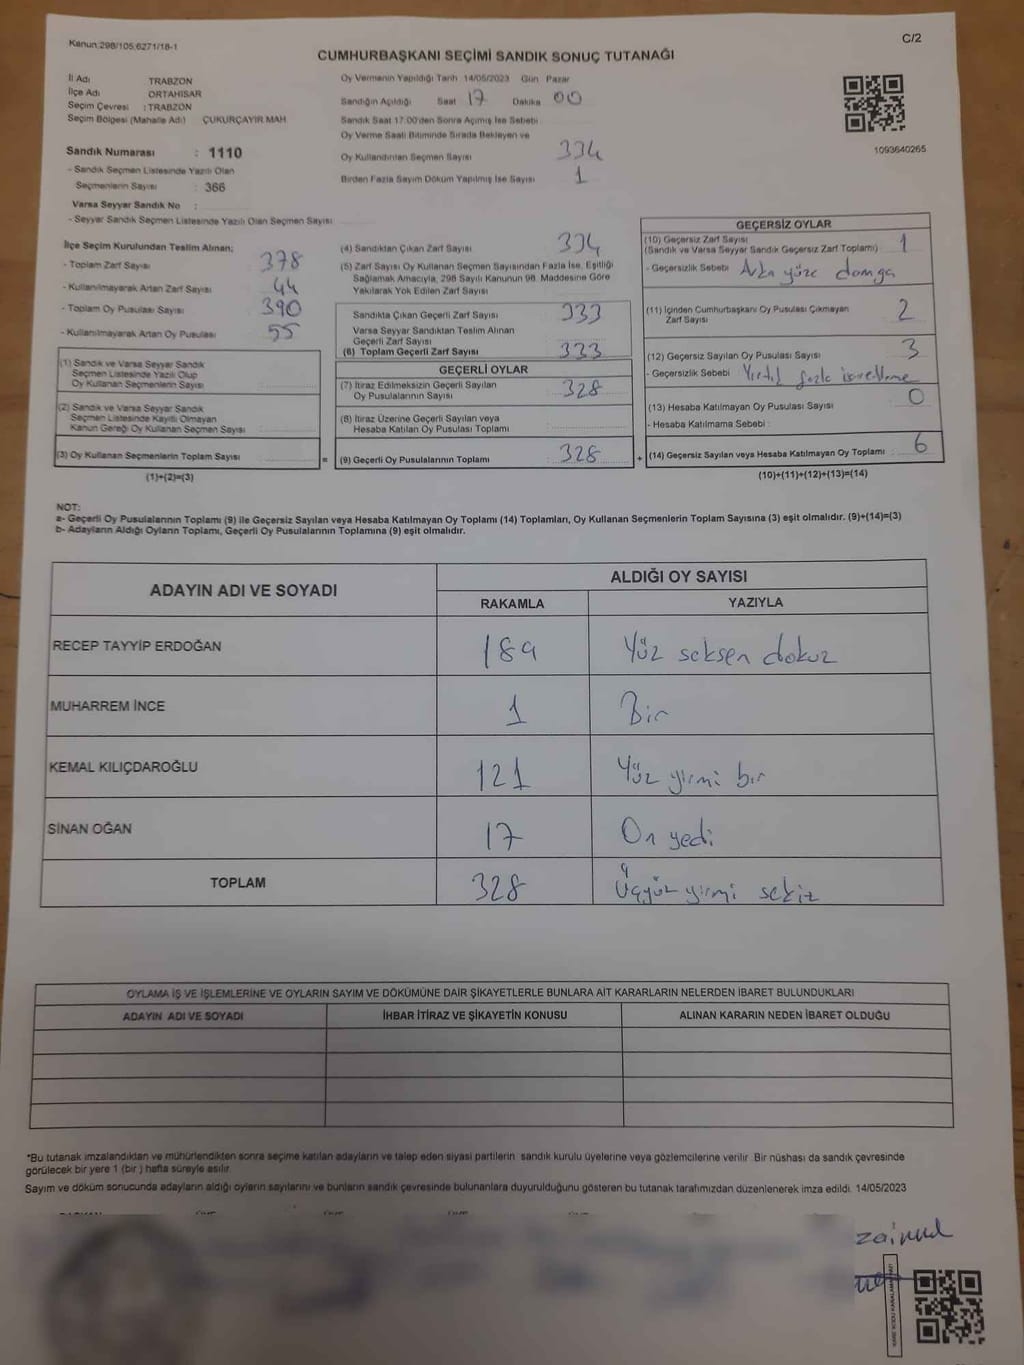 Kanun:298/105;6271/18-1
C/2
CUMHURBAŞKANI SEÇİMİ SANDIK SONUÇ TUTANAĞI
İl Adı TRABZON
İlçe Adı ORTAHİSAR
Seçim Çevresi : TRABZON
Seçim Bölgesi (Mahalle Adı) ÇUKURÇAYIR MAH.
Sandık Numarası : 1110
- Sandık Seçmen Listesinde Yazılı Olan
Seçmenlerin Sayısı : 366
Varsa Seyyar Sandık No :
- Seyyar Sandık Seçmen Listesinde Yazılı Olan Seçmen Sayısı
Oy Vermenin Yapıldığı Tarih 14/05/2023 Gün Pazar
Sandığın Açıldığı Saat 17 Dakika 00
Sandık Saat 17:00'den Sonra Açımış İse Sebebi
Oy Verme Saati Bitiminde Sırada Bekleyen ve
Oy Kullandırılan Seçmen Sayısı 334
Birden Fazla Sayım Döküm Yapılmış İse Sayısı 1
1093640265
İlçe Seçim Kurulundan Teslim Alınan;
- Toplam Zarf Sayısı 378
- Kullanılmayarak Artan Zarf Sayısı 44
- Toplam Oy Pusulası Sayısı 390
- Kullanılmayarak Artan Oy Pusulası 55
(1) Sandık ve Varsa Seyyar Sandık
Seçmen Listesinde Yazılı Olup
Oy Kullanan Seçmenlerin Sayısı :
(2) Sandık ve Varsa Seyyar Sandık
Seçmen Listesinde Kayıtlı Olmayan
Kanun Gereği Oy Kullanan Seçmen Sayısı :
(3) Oy Kullanan Seçmenlerin Toplam Sayısı : =
(1)+(2)=(3)
(4) Sandıktan Çıkan Zarf Sayısı 334
(5) Zarf Sayısı Oy Kullanan Seçmen Sayısından Fazla İse, Eşitliği
Sağlamak Amacıyla, 298 Sayılı Kanunun 98. Maddesine Göre
Yakılarak Yok Edilen Zarf Sayısı
Sandıkta Çıkan Geçerli Zarf Sayısı 333
Varsa Seyyar Sandıktan Teslim Alınan
Geçerli Zarf Sayısı
(6) Toplam Geçerli Zarf Sayısı 333
GEÇERLİ OYLAR
(7) İtiraz Edilmeksizin Geçerli Sayılan
Oy Pusulalarının Sayısı : 328
(8) İtiraz Üzerine Geçerli Sayılan veya
Hesaba Katılan Oy Pusulası Toplamı :
(9) Geçerli Oy Pusulalarının Toplamı : 328 +
GEÇERSİZ OYLAR
(10) Geçersiz Zarf Sayısı
(Sandık ve Varsa Seyyar Sandık Geçersiz Zarf Toplamı) 1
- Geçersizlik Sebebi Arka yüze damga
(11) İçinden Cumhurbaşkanı Oy Pusulası Çıkmayan
Zarf Sayısı 2
(12) Geçersiz Sayılan Oy Pusulası Sayısı 3
- Geçersizlik Sebebi fazla işaretleme
(13) Hesaba Katılmayan Oy Pusulası Sayısı 0
- Hesaba Katılmama Sebebi :
(14) Geçersiz Sayılan veya Hesaba Katılmayan Oy Toplamı : 6
(10)+(11)+(12)+(13)=(14)
NOT:
a- Geçerli Oy Pusulalarının Toplamı (9) ile Geçersiz Sayılan veya Hesaba Katılmayan Oy Toplamı (14) Toplamları, Oy Kullanan Seçmenlerin Toplam Sayısına (3) eşit olmalıdır. (9)+(14)=(3)
b- Adayların Aldığı Oyların Toplamı, Geçerli Oy Pusulalarının Toplamına (9) eşit olmalıdır.
ADAYIN ADI VE SOYADI
ALDIĞI OY SAYISI
RAKAMLA YAZIYLA
RECEP TAYYİP ERDOĞAN 189 Yüz seksen dokuz
MUHARREM İNCE 1 Bir
KEMAL KILIÇDAROĞLU 121 Yüz yirmi bir
SİNAN OĞAN 17 On yedi
TOPLAM 328 Üçyüz yirmi sekiz
OYLAMA İŞ VE İŞLEMLERİNE VE OYLARIN SAYIM VE DÖKÜMÜNE DAİR ŞİKAYETLERLE BUNLARA AİT KARARLARIN NELERDEN İBARET BULUNDUKLARI
ADAYIN ADI VE SOYADI İHBAR İTİRAZ VE ŞİKAYETİN KONUSU ALINAN KARARIN NEDEN İBARET OLDUĞU
*Bu tutanak imzalandıktan ve mühürlendikten sonra seçime katılan adayların ve talep eden siyasi partilerin sandık kurulu üyelerine veya gözlemcilerine verilir. Bir nüshası da sandık çevresinde
görülecek bir yere 1 (bir ) hafta süreyle asılır.
Sayım ve döküm sonucunda adayların aldığı oyların sayılarını ve bunların sandık çevresinde bulunanlara duyurulduğunu gösteren bu tutanak tarafımızdan düzenlenerek imza edildi. 14/05/2023